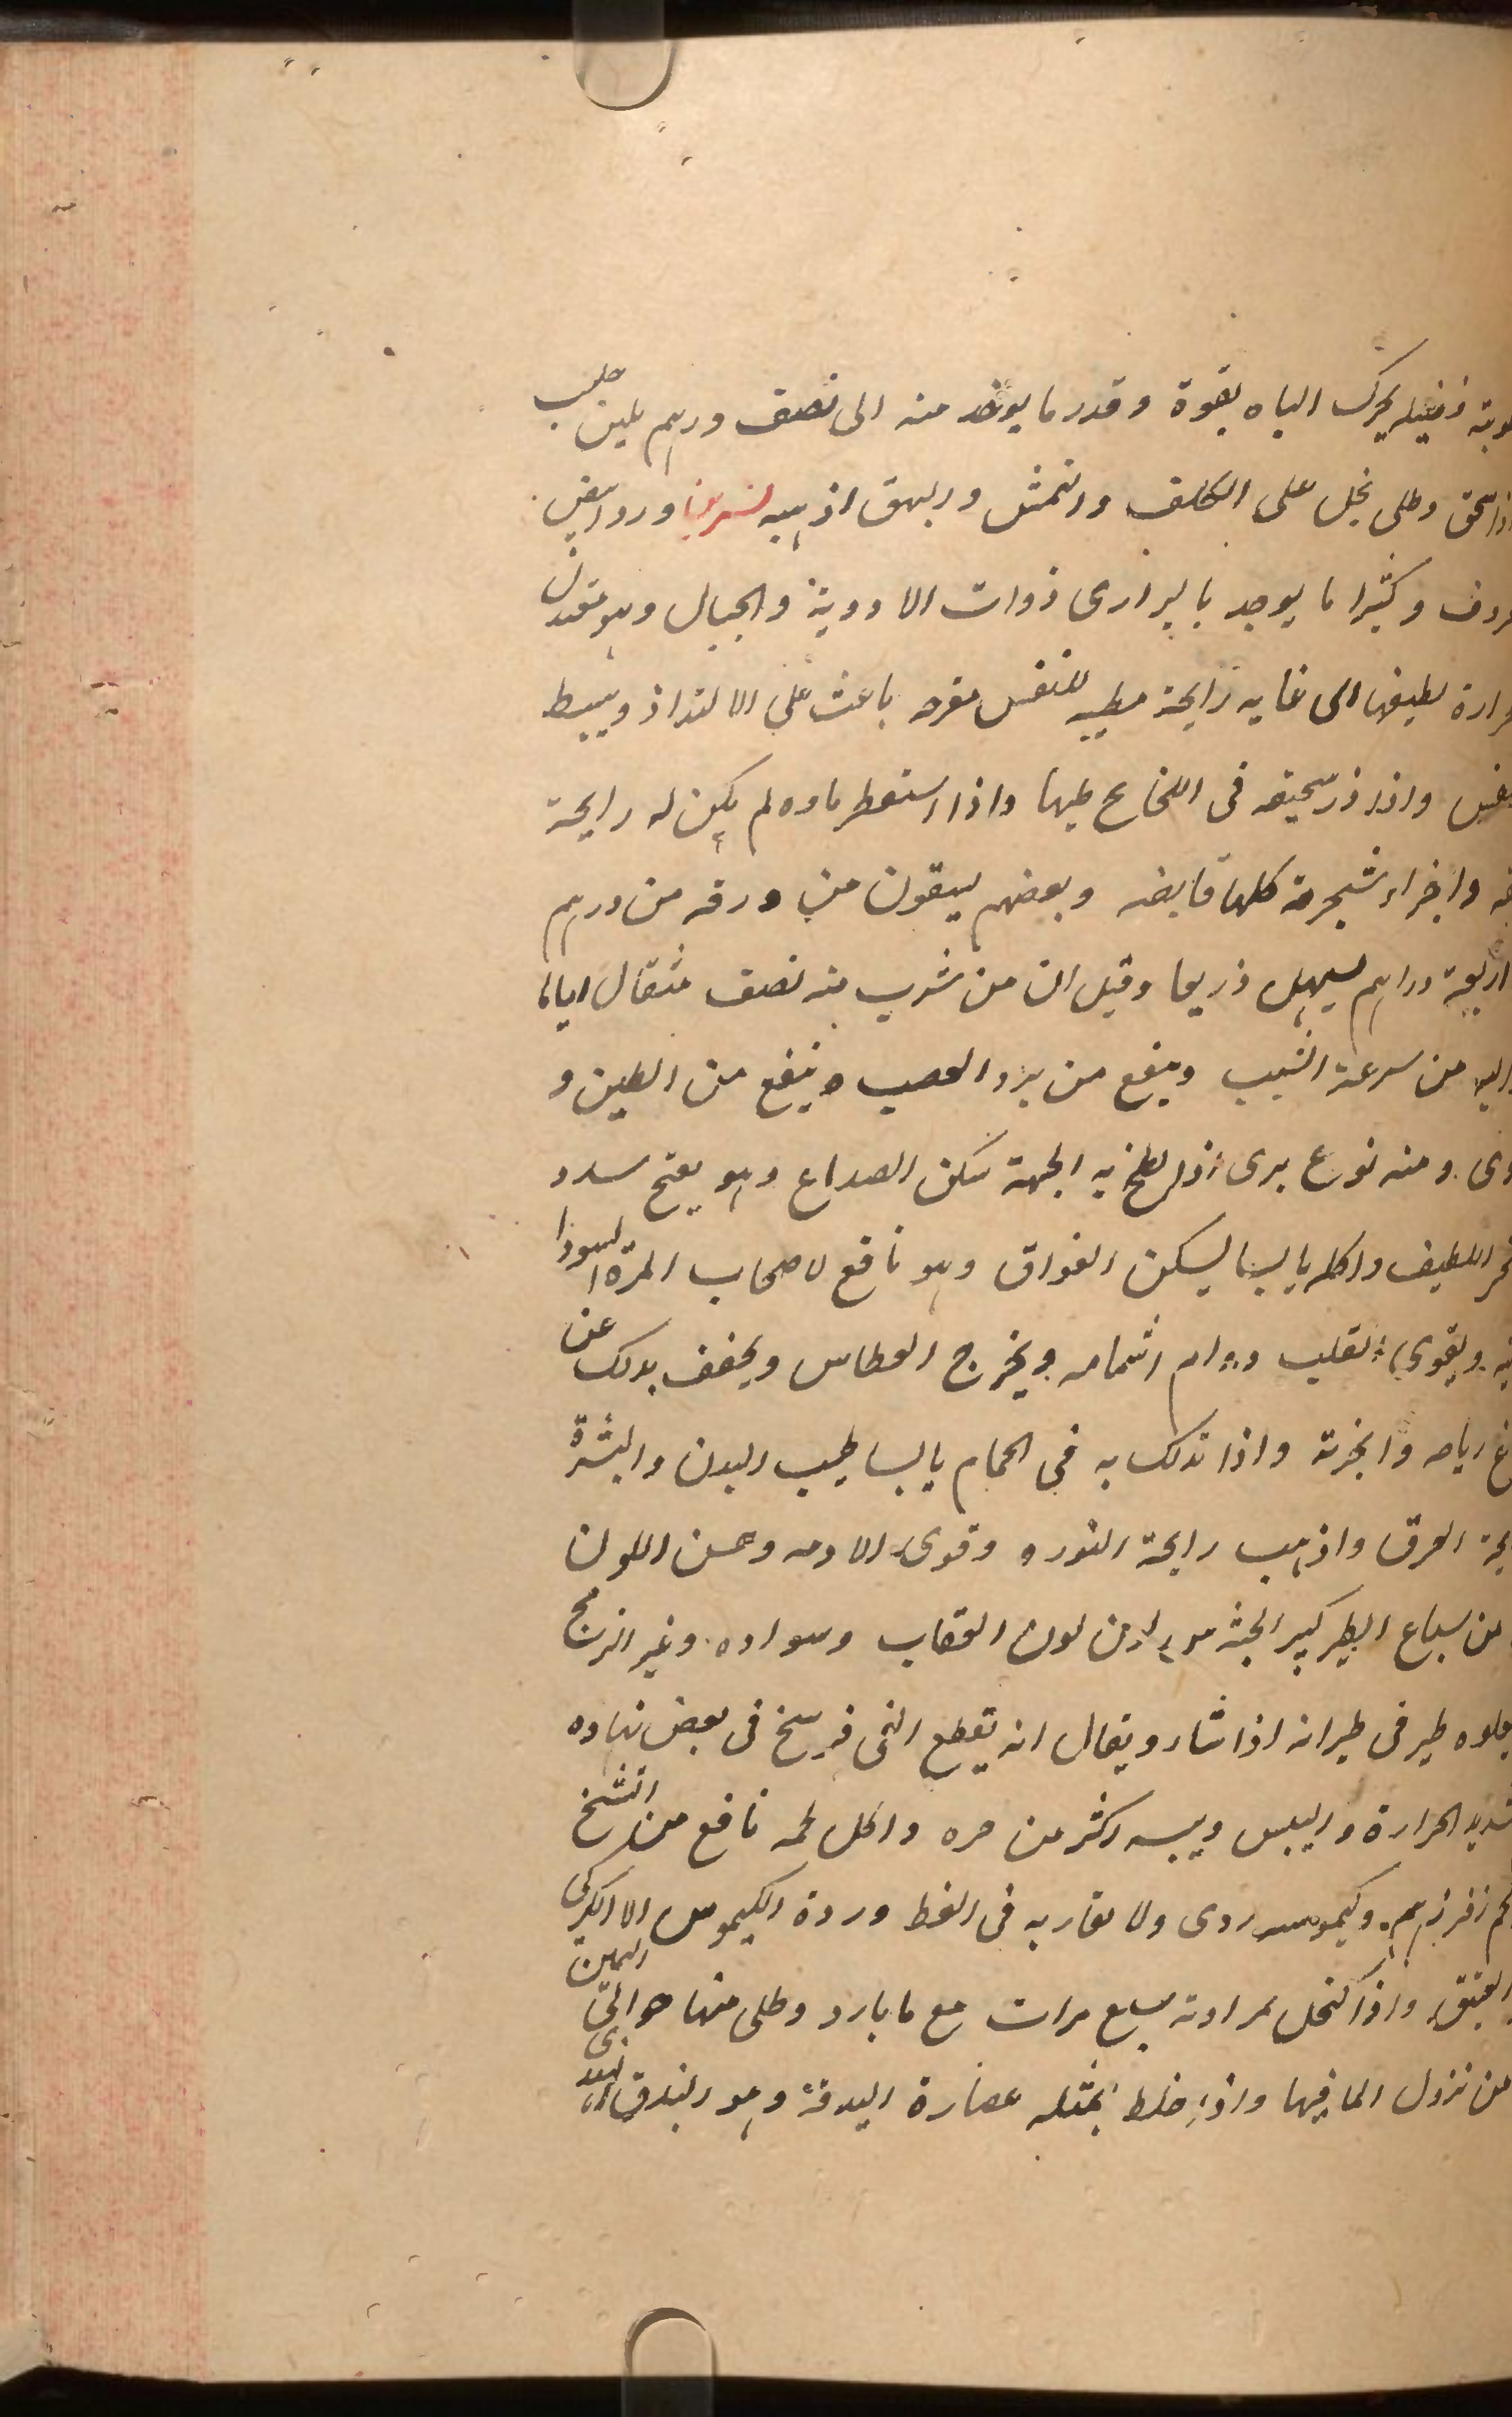 وبة زنجبيل يحرك الباه بقوة وقدر ما يوخذ منه الى نصف درهم بلبن حليب
اذا سحق وطلى بخل على الكلف والنمش والبهق اذهبه نسرين ورد ابيض
روف وكثيرا ما يوجد بالبرارى ذوات الاودية والجبال وهو معتدل
حرارة لطيفها الى غايه رايحة مطيبه للنفس مفرحه باعث على الالتذاذ ويبسط
نفس واذا ذر سحيقه فى اللخالخ طيبها واذا استقطر ماوه لم يكن له رايحة
واجزاء شجرته كلها قابضه وبعضهم يسقون من ورقه من درهم
اربعة دراهم يسهل ذريعا وقيل ان من شرب منه نصف مثقال اياما
اليه من سرعة الشيب وينفع من برد العصب وينفع من الطنين و
وى ومنه نوع برى اذا لطخ به الجبهة سكن الصداع وهو يفتح سدد
اللطيف واكله يابسا يسكن الفواق وهو نافع لاصحاب المرة السودا
ويقوى القلب دوام اشمامه ويخرج العطاس ويخفف بذلك عن
غ رياحه وابخرته واذا تدلك به فى الحمام يابسا طيب البدن والبشرة
يحة العرق واذهب رايحة النوره وقوى الادمه وحسن اللون
من سباع الطير كبير الجثه من لون العقاب وسواده وغير الزمج
يعلوه طير فى طيرانه اذا شاء ويقال انه يقطع الفى فرسخ فى بعض نهاره
شديد الحرارة واليبس ويبسه اكثر من حره واكل لحمه نافع من التشنج
لحم زفر زهم وكيموسه ردى ولا يقاربه فى الغلظ وردة الكيموس الا الكركى
العتيق واذا اكتحل بمرارته سبع مرات مع ما بارد وطلى منها حوالى العين
من نزول الما فيها واذا خلط بمثله عصارة البدقة وهو البندق الهندى